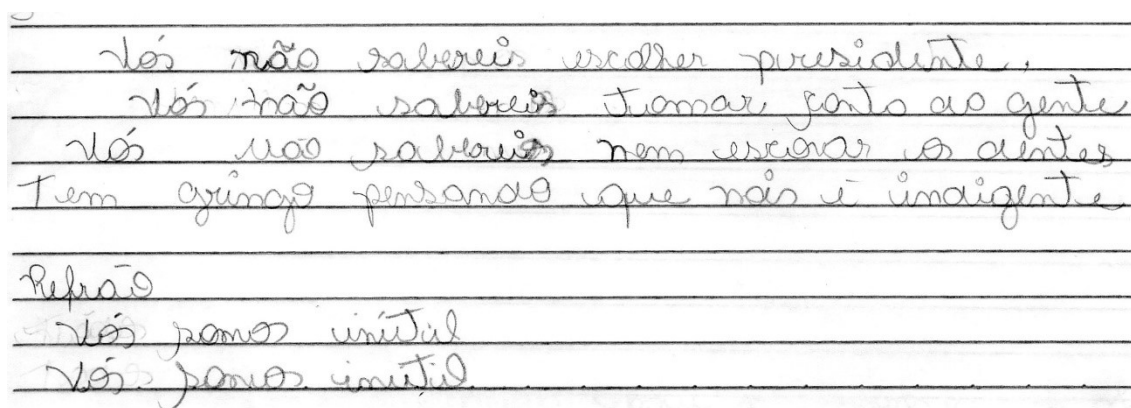 Vós não sabereis escolher presidente.
Vós não sabereis tomar conta da gente
Vós não sabereis nem escovar os dentes
Tem gringo pensando que nóis é indigente
Refrão
Vós somos inútil
Vós somos inútil